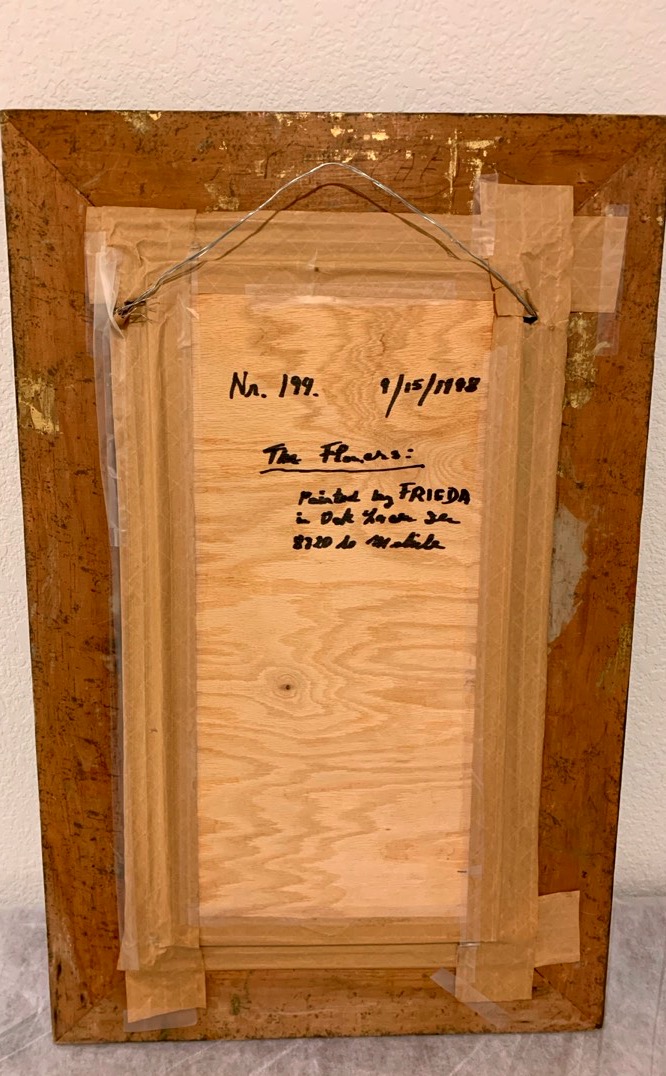 Nr. 199. 9/15/1998
The Flowers:
Painted by FRIEDA
in Oak
8720